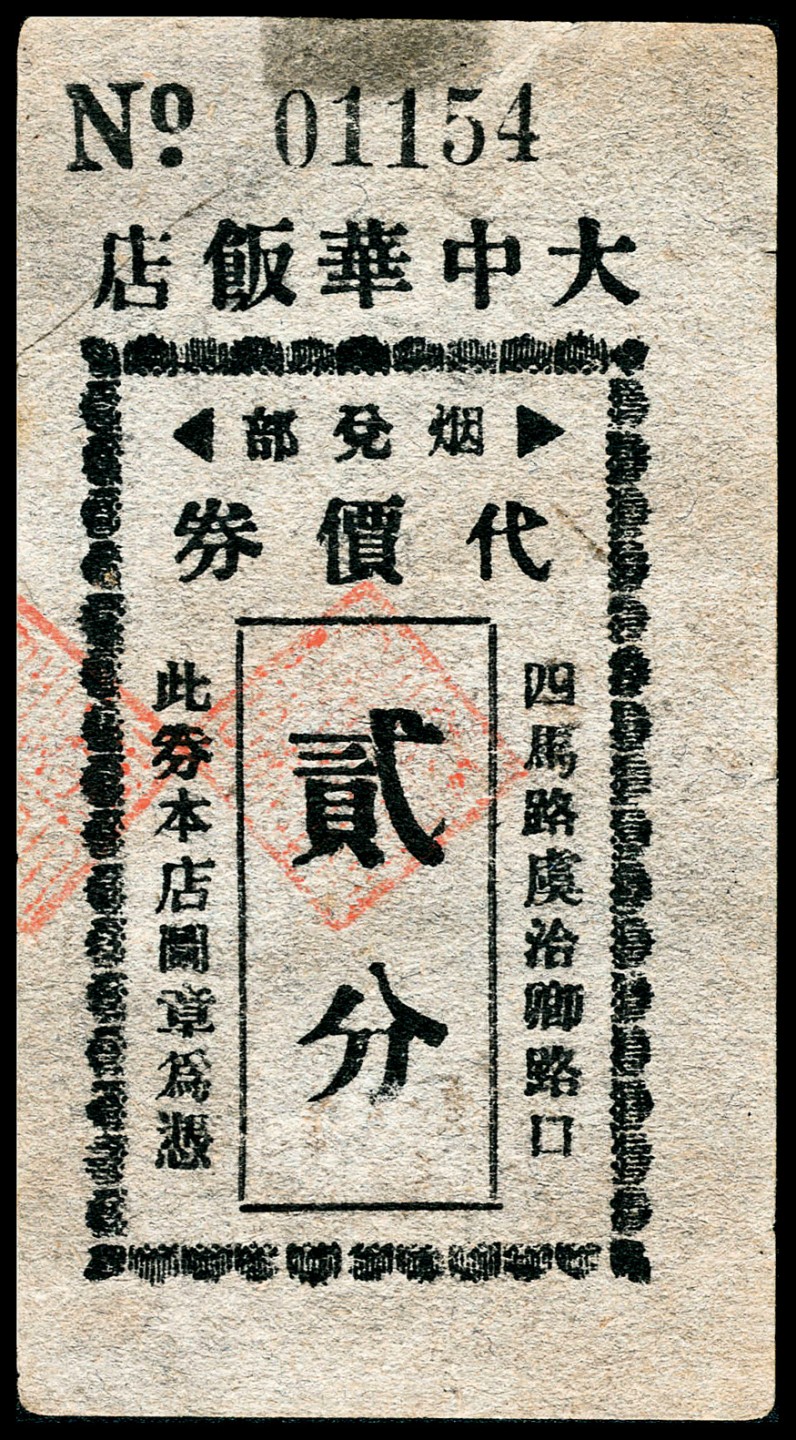 Nº 01154
大中華飯店
烟兌部
代價券
四馬路虞洽卿路口
貳分
此券本店圖章為憑